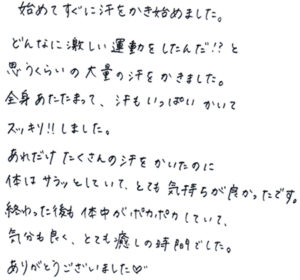 始めてすぐに汗をかき始めました。
どんなに激しい運動をしたんだ!?と
思うくらいの大量の汗をかきました。
全身あたたまって、汗もいっぱいかいて
スッキリ!!しました。
あれだけたくさんの汗をかいたのに
体はサラッとしていて、とても気持ちが良かったです。
終わった後も体中がポカポカしていて、
気分も良く、とても癒しの時間でした。
ありがとうございました♡